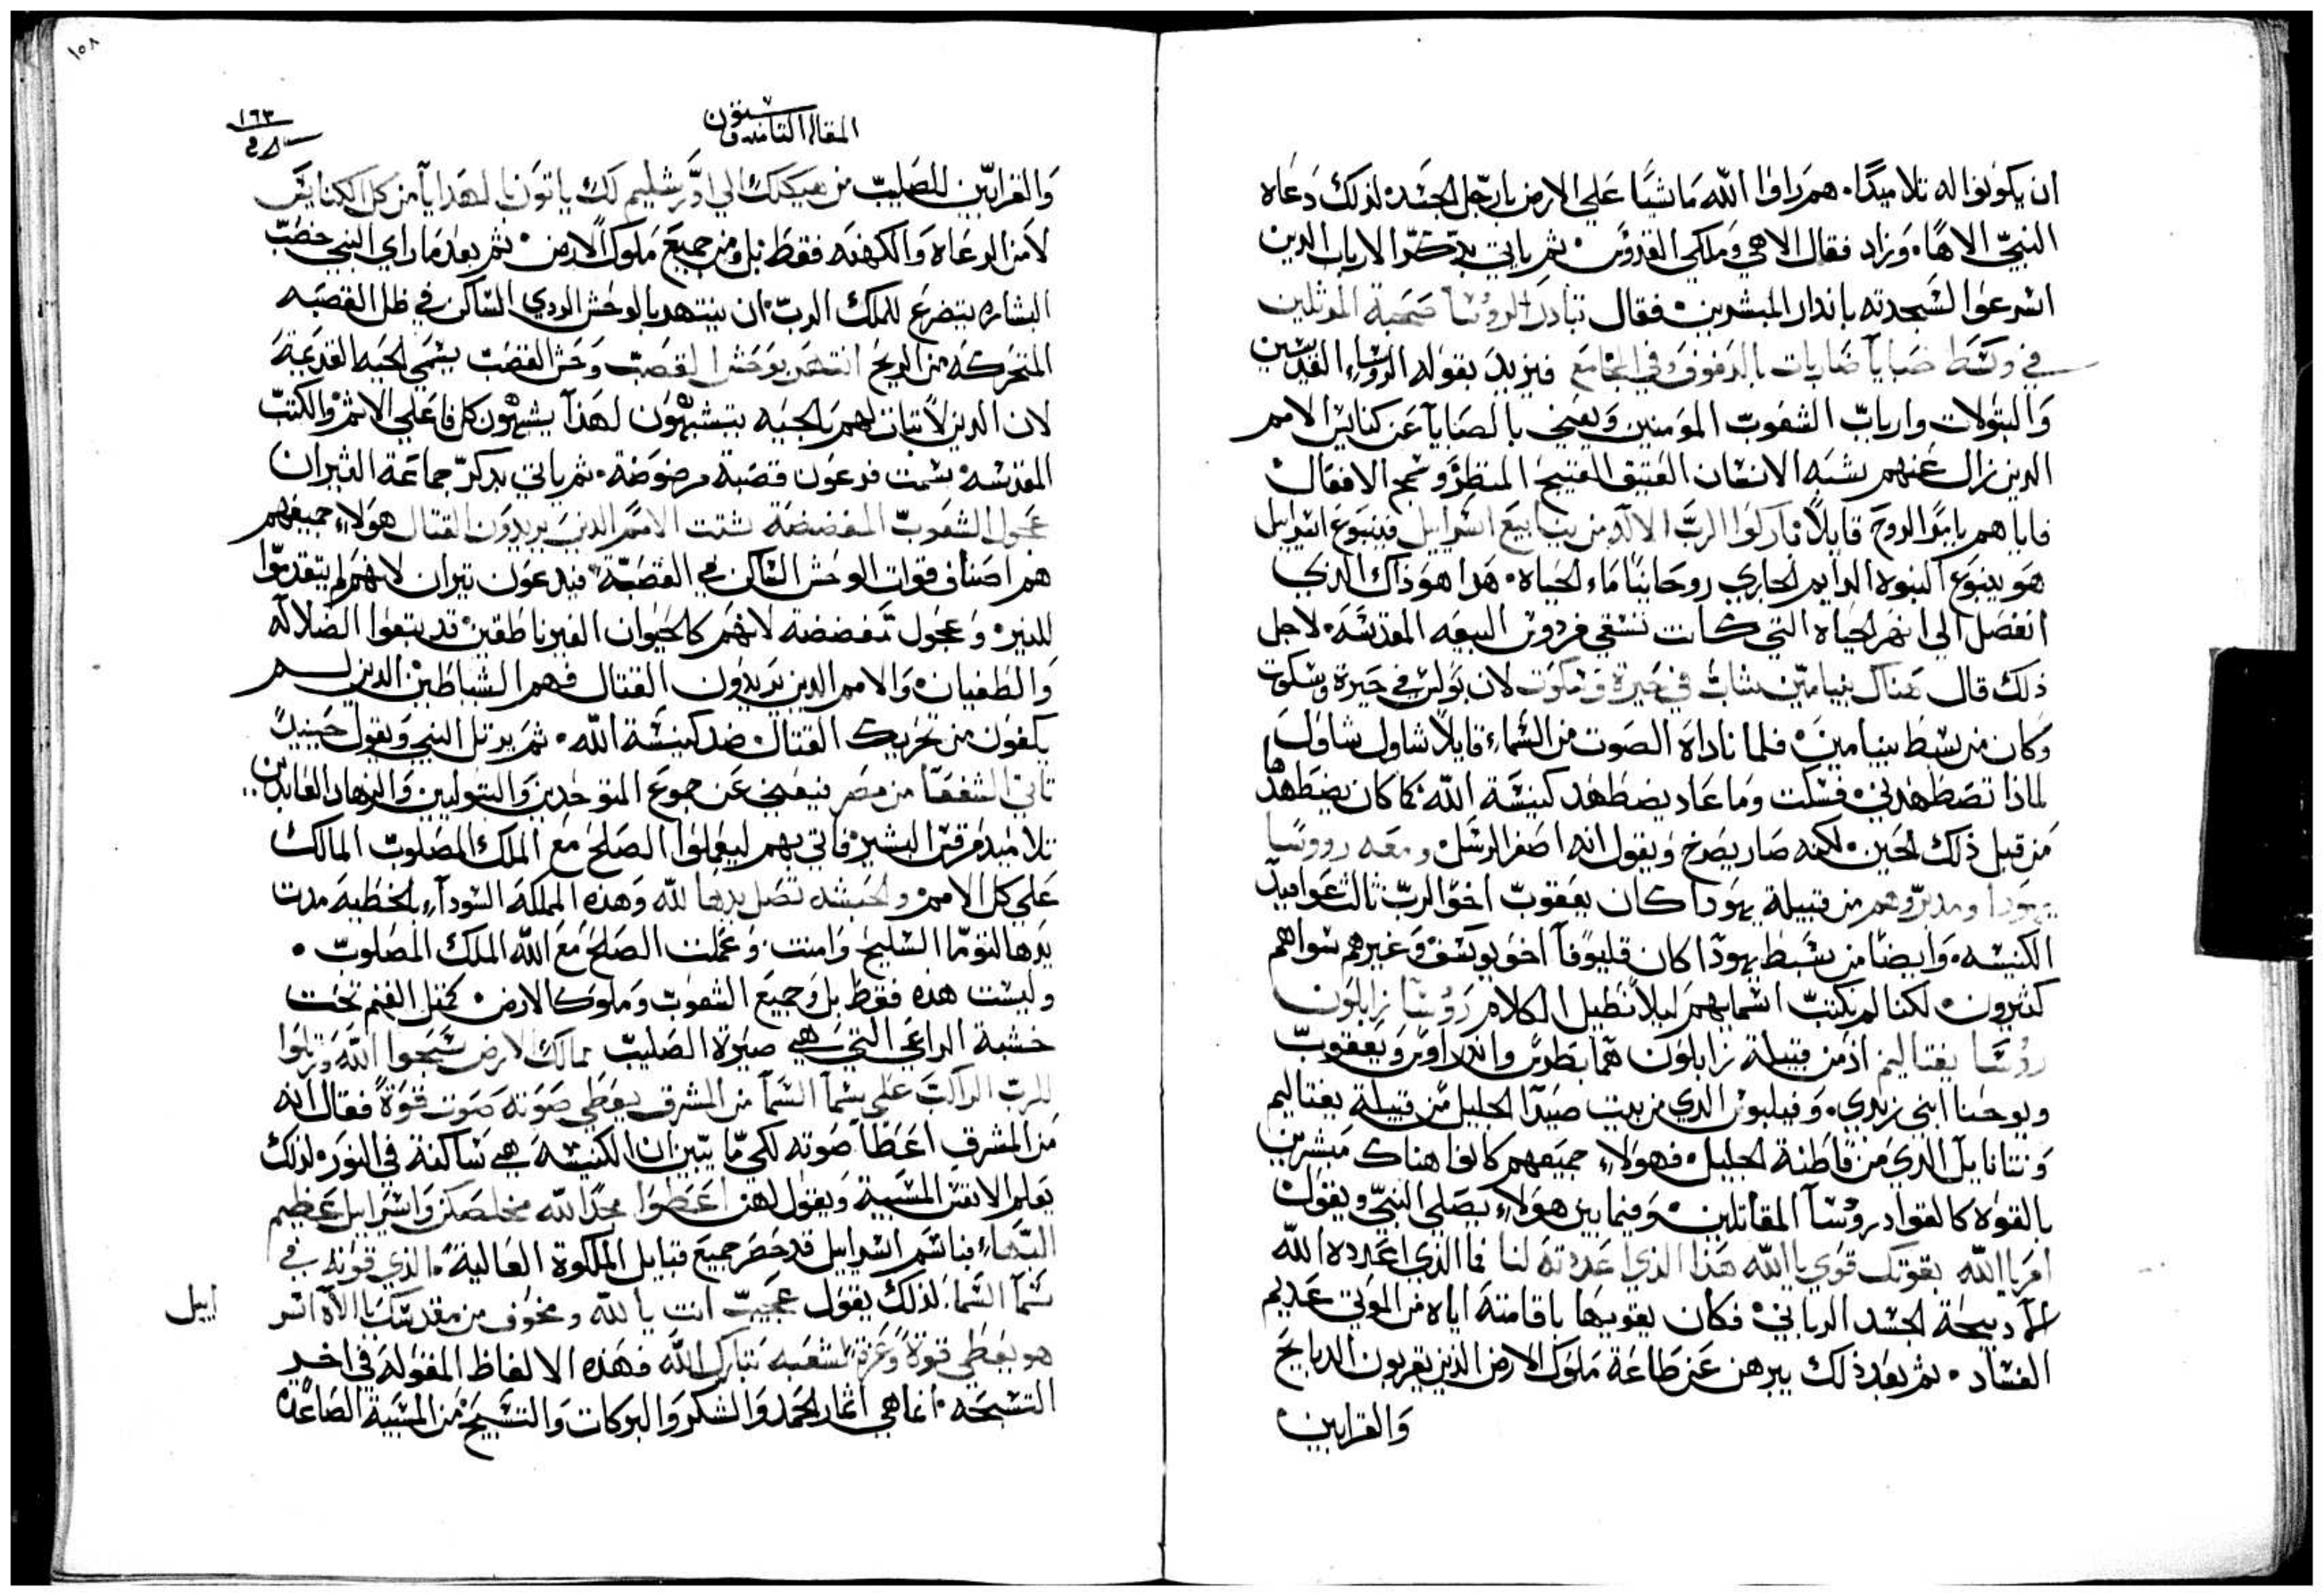 ان يكونوا له تلاميدًا. هم راوا الله ماشيًا علي الارض بارجل الجسد. لذلك دعاه
النبيّ الاهًا. وزاد فقال الاهي وملكي القدوس. ثم ياتي بتدكّر الارباب الدين
اسرعوا لسجدته باندار المبشرين. فقال تبادرت الروسا صحبة المرتلين
في وسط صبايا ضاربات بالدفوف وفي المجامع فيزيد بقوله الروسا القديسين
والبتولات وارباب الشعوب المومنين ويعني بالصبايا عن كنايس الامم
الدين زال عنهم شبه الانسان العتيق القبيح المنظر وسمج الافعال
فاياهم يامر الروح قايلًا باركوا الربّ الاله من ينابيع اسراييل فينبوع اسراييل
هو ينبوع النبوه الدايم الجاري روحانيًا ماء الحياه. هدا هو ذاك الدي
انفصل الي انهر الحياه التي كانت تسقي فردوس البيعه المقدسه. لاجل
ذلك قال هناك بنيامين شاب في حيرة وسكوت لان بولس في حيرة وسكوت
وكان من سبط بنيامين. فلما ناداه الصوت من السماء قايلًا شاول شاول
لمادا تضطهدني. فسكت وما عاد يضطهد كنيسة الله. كما كان يضطهدها
من قبل ذلك الحين. لكنه صار يصرخ ويقول انه اصغر الرسل ومعه رووسا
يهودا ومدبروهم من قبيلة يهودا كان يعقوب اخو الربّ ثالث عواميد
الكنيسه. وايضًا من سبط يهودا كان قليوفا اخو يوسف وغيرهم سواهم
كثيرون. لكنا لم نكتب اسمايهم ليلا نطيل الكلام روسا زابلون
روسا نفتاليم اذ من قبيلة زابلون هما بطرس واندراوس ويعقوب
ويوحنا ابني زبدي. وفيلبوس الدي من بيت صيدا الجليل من قبيلة نفتاليم
ونتانايل الدي من قاطنة الجليل. فهولاء جميعهم كانوا هناك مبشرين
بالقوه كالقواد روسآ المقاتلين. وفيما بين هولاء يصلي النبيّ ويقول
امر يا الله بقوتك قوي يا الله هذا الذي اعددته لنا فما الذي اعدده الله
الا دبيحة الجسد الرباني. فكان يقويها باقامته اياه من الموتي عديم
الفساد. ثم بعد ذلك يبرهن عن طاعة ملوك الارض الذين يقربون الدبايح
والقرابين
١٥٨
١٦٣
المقالة الثامنة ستون
والقرابين للصليب من هيكلك الي اورشليم لك ياتون بالهدايا من كل الكنايس
لا من الرعاه والكهنه فقط بل ومن جميع ملوك الارض. ثم بعدما راي النبي خصب
البشاره يتضرع للملك الربّ ان ينتهر الوحش الردي الساكن في ظل القصبه
المتحركه من الريح انتهر يوحش القصب وحش القصب يسمي الحيه القديمة
لان الدين لا ثبات لهم بالحيه يتشبهون لهذا يشبهون كل فاعلي الاثم والكتب
المقدسه سمت فرعون قصبة مرضوضة. ثم ياتي بدكر جماعة الثيران
عجول الشعوب المفضضة شتت الامم الذين يريدون القتال هولاء جميعهم
هم اصناف قوات الوحش الساكن في القصبة. فيدعون تيران لانهم لم يتقدموا
للنير. وعجول مفضضة لانهم كالحيوان الغير ناطقين قد يتبعوا الضلاله
والطغيان. والامم الدين يريدون القتال فهم الشياطين الدين لم
يكفون من تحريك القتال ضد كنيسة الله. ثم يرتل النبي ويقول حينيدً
تاتي الشفعا من مصر فيعني عن جموع المتوحدين والبتوليين والزهاد العابدين
تلاميذ مرقس البشير. فاتي بهم ليعملوا الصلح مع الملك المصلوب المالك
علي كل الامم. والحبشه تصل يدها لله وهذه المملكه السوداء بالخطيه مدت
يدها لتوما السليح وامنت. وعملت الصلح مع الله الملك المصلوب.
وليست هده فقط بل وجميع الشعوب وملوك الارض. كمثل الغنم تحت
خشبة الراعي التي هي صيرة الصليب ممالك الارض سبحوا الله ورتلوا
للرب الراكب علي سما السما من المشرق يعطي صوته صوت قوة فقال انه
من المشرق اعطا صوته لكي ما يبين ان الكنيسة هي ساكنة في النور. لذلك
يعلم الانفس المسبية ويقول لهن اعطوا مجدًا لله مخلصكن واسراييل عظيم
البهاء فباسم اسراييل قد حصر جميع قبايل الملكوة العالية. الذي قوته في
سما السما. لذلك يقول عجيب انت يا لله ومخوف من مقدسك الاه اسر
اييل
هو يعطي قوة وعزة لشعبه تبارك الله فهذه الالفاظ المقوله في اخر
التسبحه. انما هي اثمار الحمد والشكر والبركات والتسبيح من المسبية الصاعدة